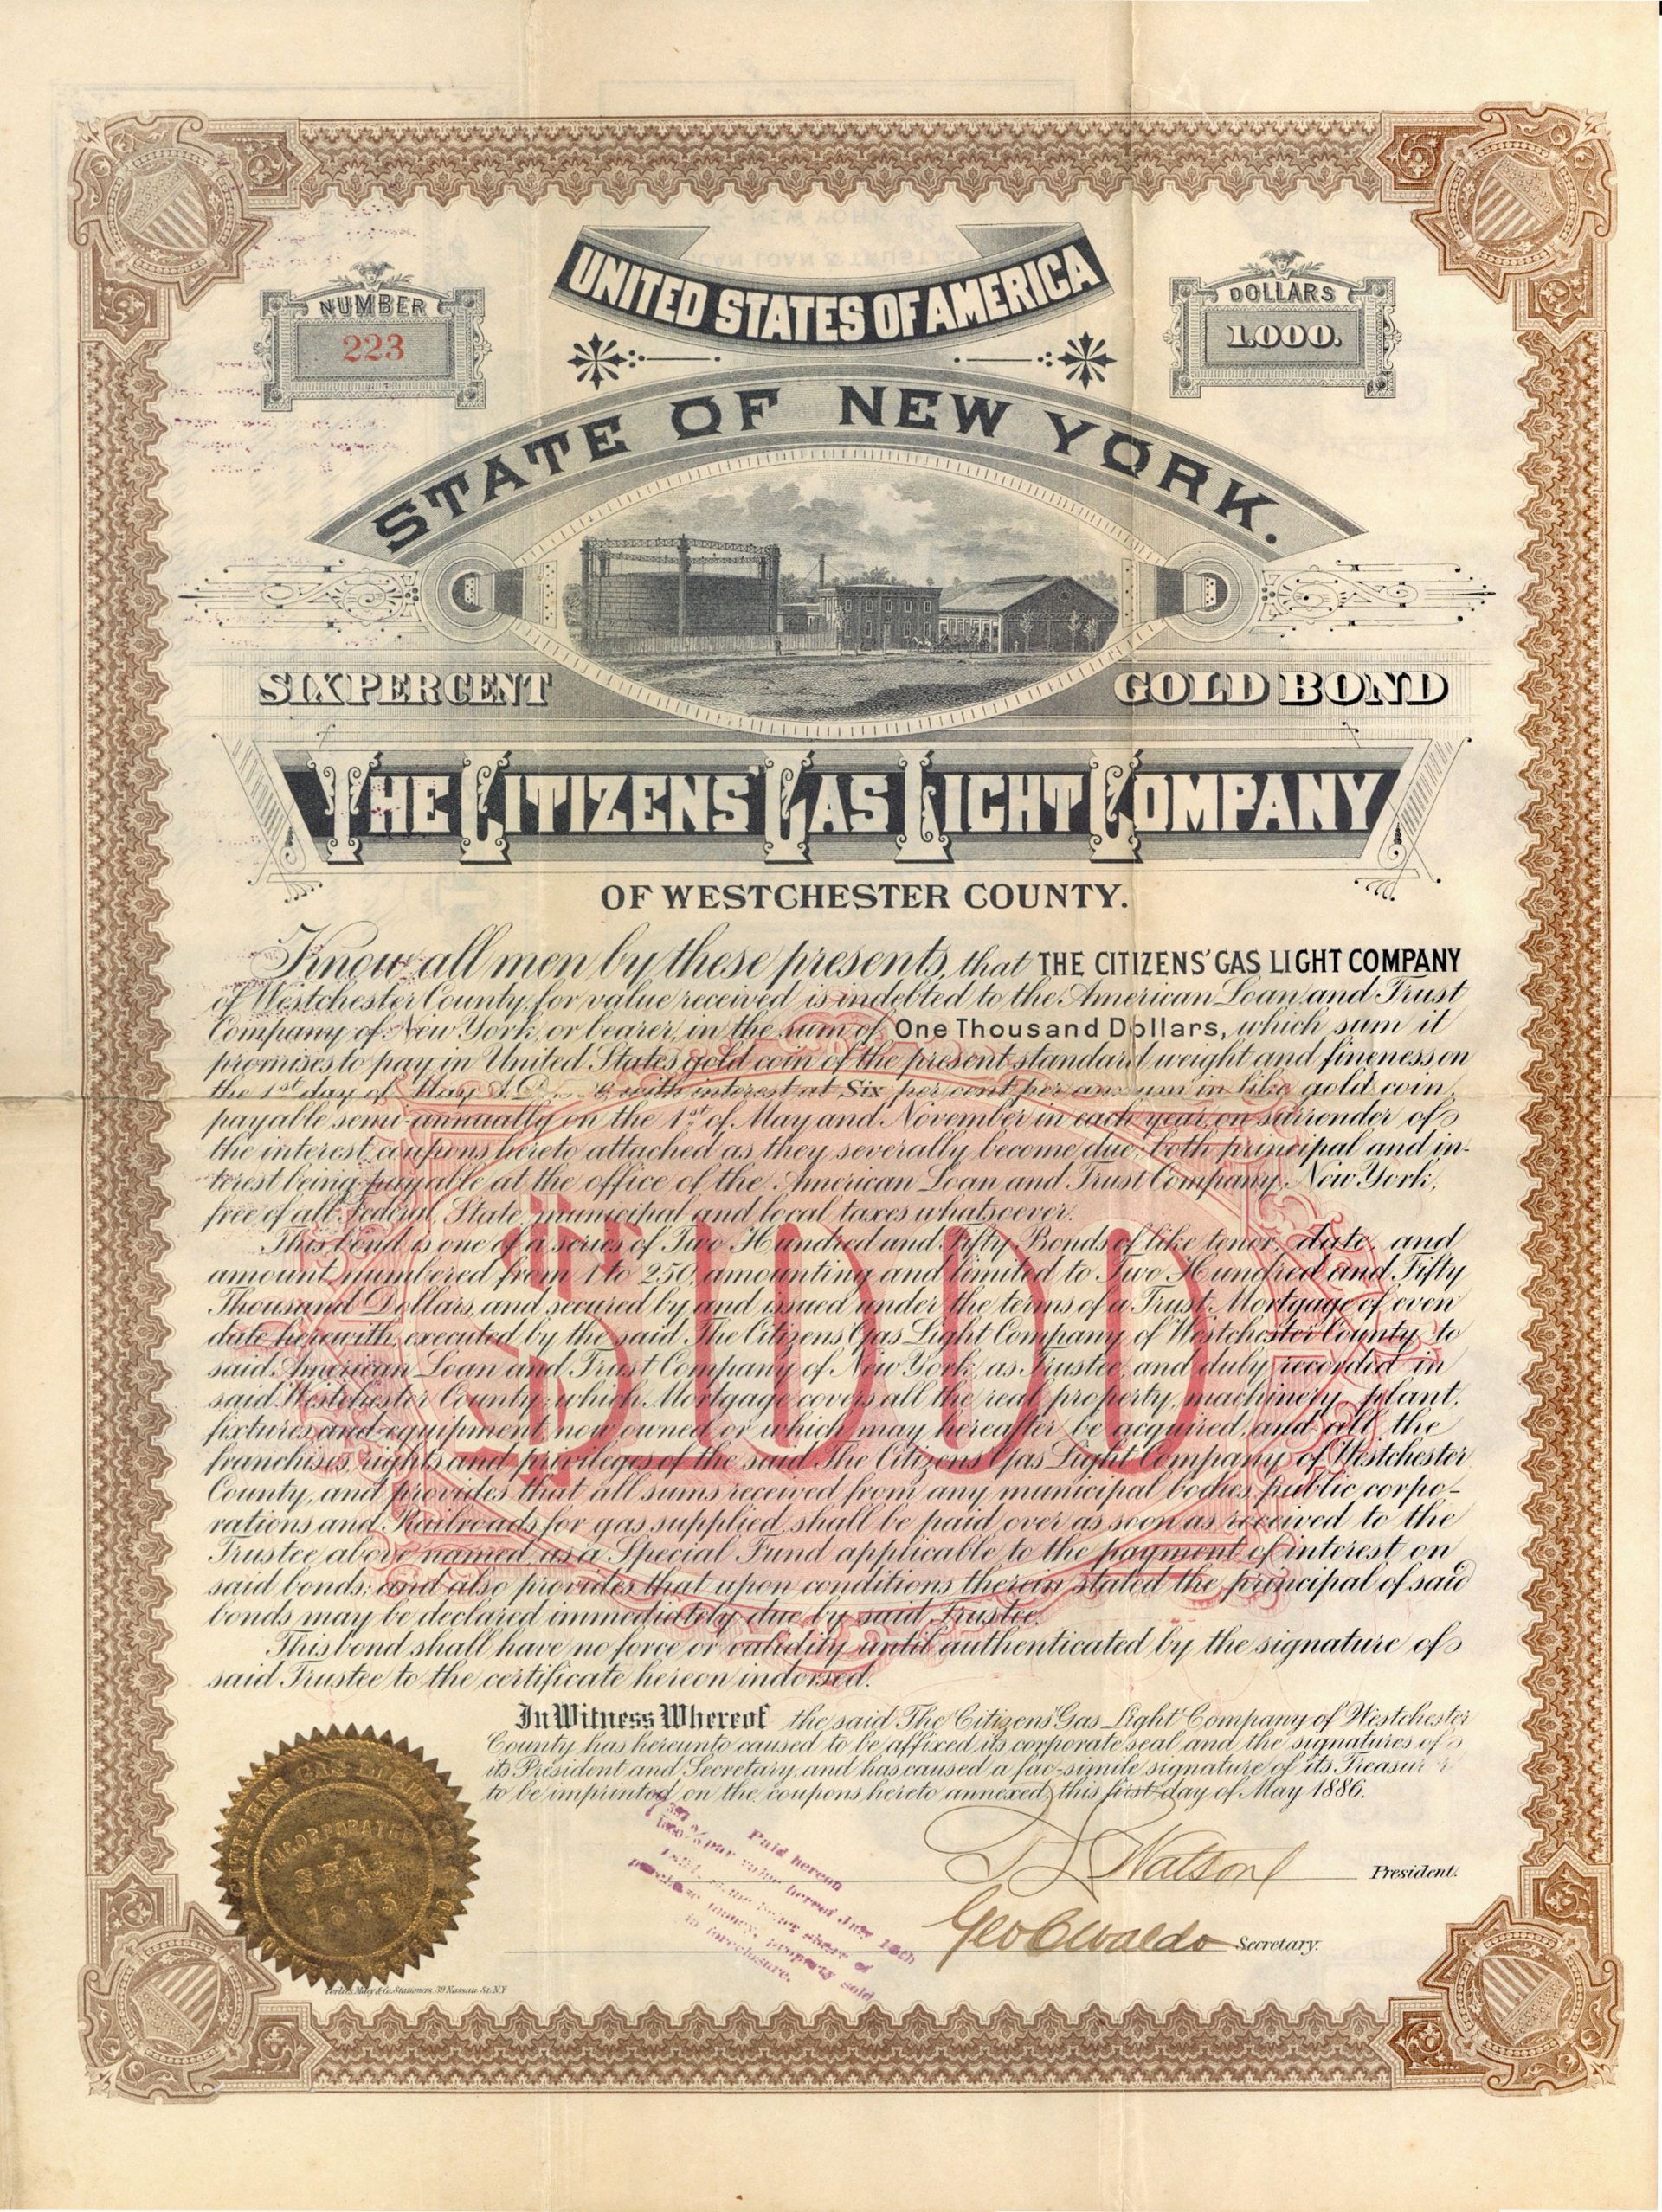 UNITED STATES OF AMERICA
NUMBER
223
DOLLARS
1.000.
STATE OF NEW YORK.
SIX PER CENT
GOLD BOND
THE CITIZENS' GAS LIGHT COMPANY
OF WESTCHESTER COUNTY.
Know all men by these presents, that THE CITIZENS' GAS LIGHT COMPANY
of Westchester County, for value received is indebted to the American Loan and Trust
Company of New York, or bearer, in the sum of One Thousand Dollars, which sum it
promises to pay in United States gold coin of the present standard weight and fineness on
the 1st day of May A.D. with interest at Six per cent per annum in like gold coin,
payable semi-annually on the 1st of May and November in each year, on surrender of
the interest coupons hereto attached as they severally become due; both principal and in-
terest being payable at the office of the American Loan and Trust Company, New York,
free of all Federal, State, municipal and local taxes whatsoever.
This bond is one of a series of Two Hundred and Fifty Bonds of like tenor, date, and
amount, numbered from 1 to 250, amounting and limited to Two Hundred and Fifty
Thousand Dollars, and secured by and issued under the terms of a Trust Mortgage of even
date herewith, executed by the said The Citizens Gas Light Company of Westchester County to
said American Loan and Trust Company of New York, as Trustee, and duly recorded in
said Westchester County, which Mortgage covers all the real property, machinery, plant,
fixtures and equipment, now owned or which may hereafter be acquired, and all the
franchises, rights and privileges of the said The Citizens Gas Light Company of Westchester
County, and provides that all sums received from any municipal bodies, public corpo-
rations and Railroads for gas supplied, shall be paid over as soon as received to the
Trustee above named as a Special Fund applicable to the payment of interest on
said bonds; and also provides that upon conditions therein stated the principal of said
bonds may be declared immediately due by said Trustee.
This bond shall have no force or validity until authenticated by the signature of
said Trustee to the certificate hereon indorsed.
$1000
In Witness Whereof the said The Citizens' Gas Light Company of Westchester
County has hereunto caused to be affixed its corporate seal and the signatures of
its President and Secretary, and has caused a fac-simile signature of its Treasur
to be imprinted on the coupons hereto annexed, this first day of May 1886.
Watson President.
Geo C Waldo Secretary.
Paid hereon
% par value hereof July 18th
1894, same being share of
purchase money, property sold
in foreclosure.
CITIZENS GAS LIGHT CO.
INCORPORATED
SEAL
Macy & Co. Stationers, 39 Nassau St. N.Y